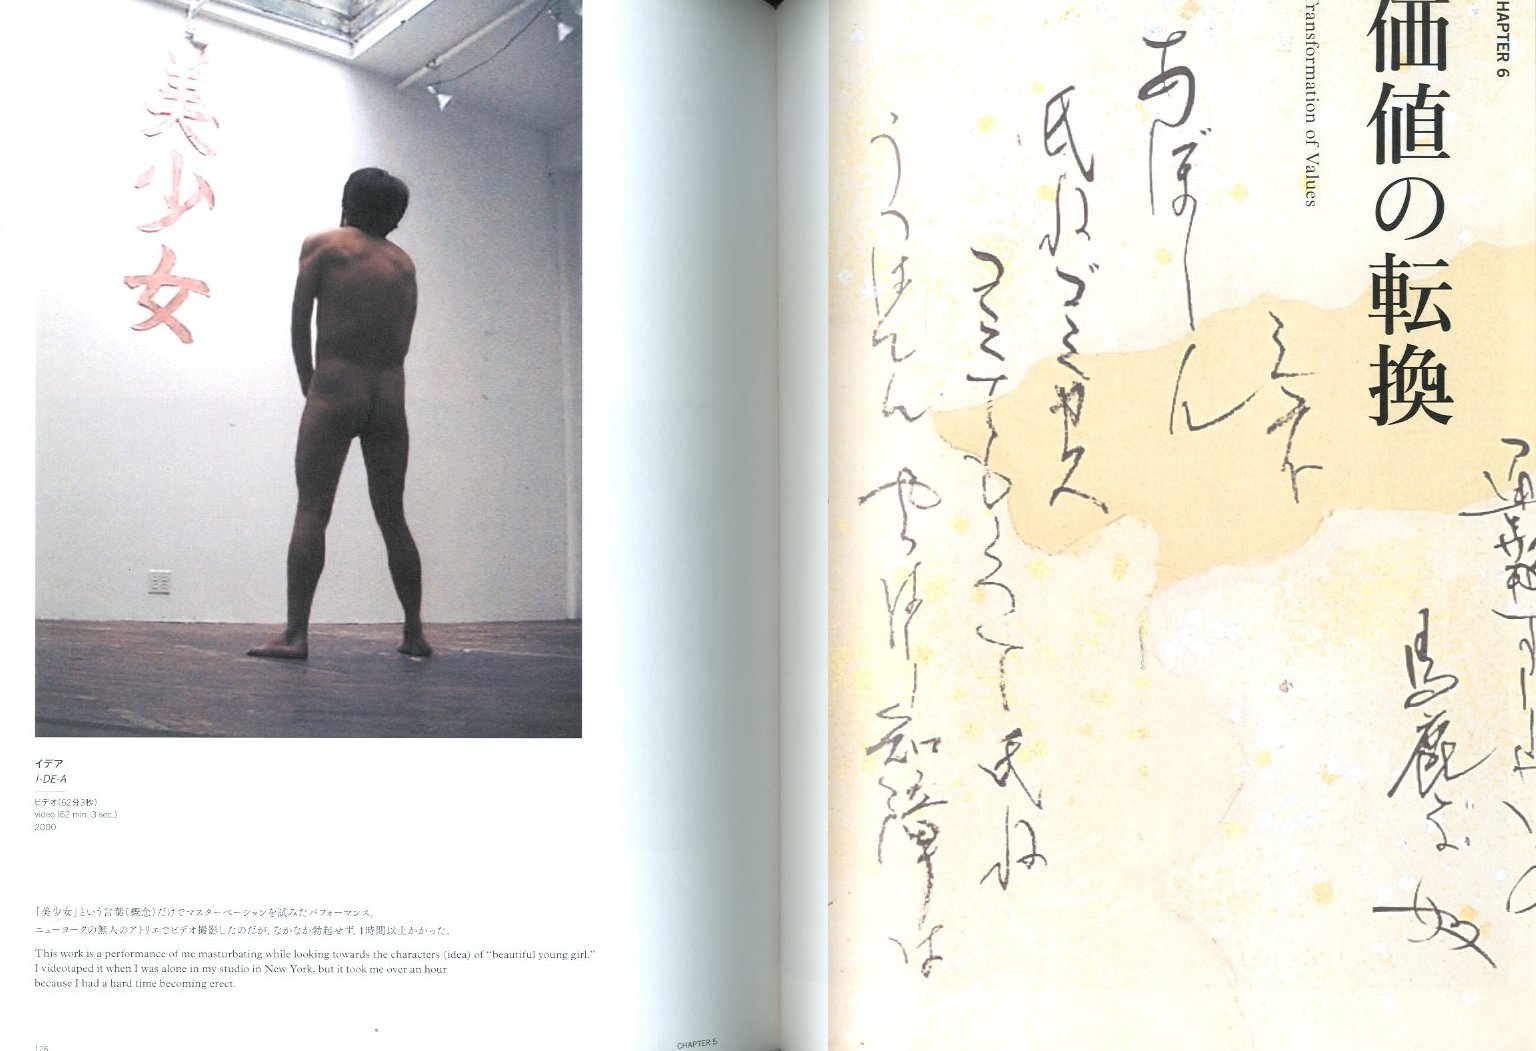 美少女
イデア
I-DE-A
ビデオ(62分3秒)
video (62 min. 3 sec.)
2000
「美少女」という言葉(概念)だけでマスターベーションを試みたパフォーマンス。
ニューヨークの無人のアトリエでビデオ撮影したのだが、なかなか勃起せず、1時間以上かかった。
This work is a performance of me masturbating while looking towards the characters (idea) of “beautiful young girl.”
I videotaped it when I was alone in my studio in New York, but it took me over an hour
because I had a hard time becoming erect.
126
CHAPTER 5
HAPTER 6
価値の転換
ransformation of Values
馬鹿
あぼーん
氏ねゴミカス
氏ね
知障は